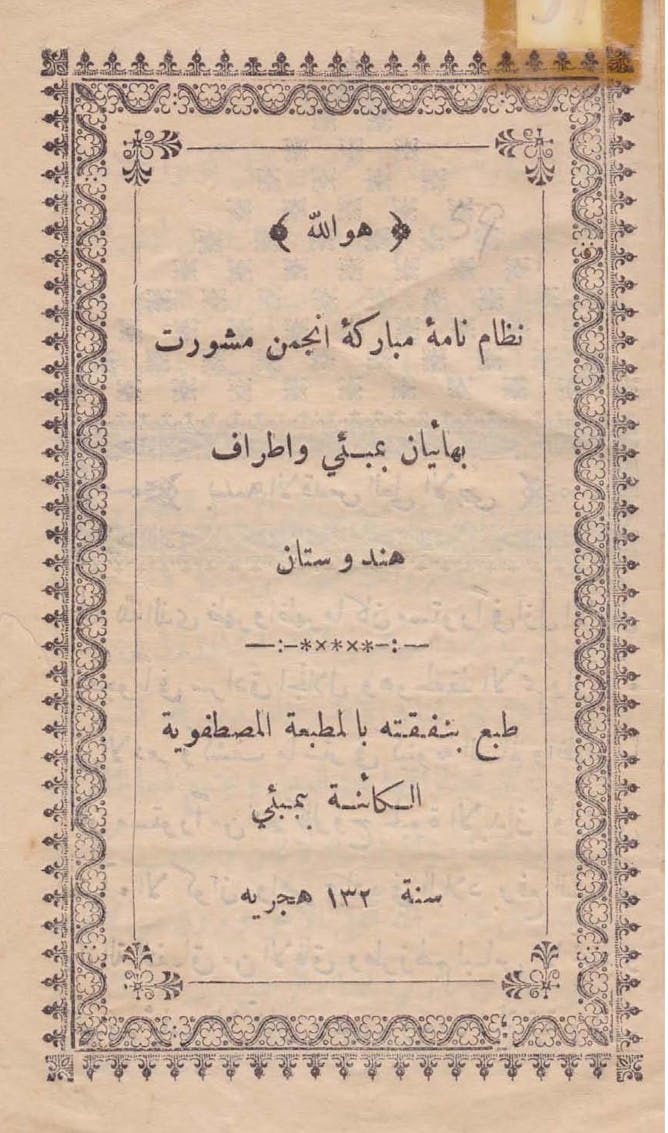 ﴿ هو الله ﴾
نظام نامهٔ مباركهٔ انجمن مشورت
بهائيان بمبئي واطراف
هندوستان
طبع بنفقته بالمطبعة المصطفوية
الكائنة بمبئي
سنة ١٣٢ هجريه